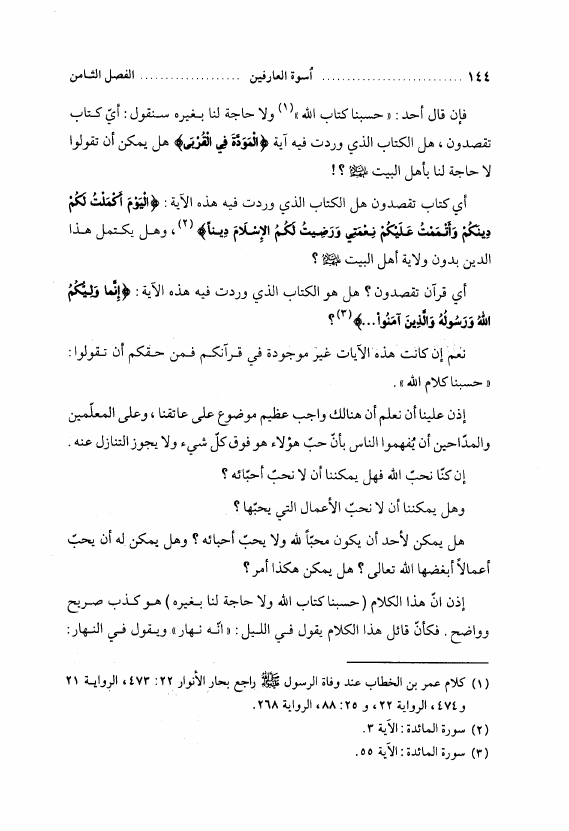 ١٤٤ .............................. أسوة العارفين .................... الفصل الثامن
فإن قال أحد: «حسبنا كتاب الله»(١) ولا حاجة لنا بغيره سنقول: أيّ كتاب
تقصدون، هل الكتاب الذي وردت فيه آية ﴿الْمَوَدَّةَ فِي الْقُرْبَى﴾ هل يمكن أن تقولوا
لا حاجة لنا بأهل البيت ﷺ ؟!
أي كتاب تقصدون هل الكتاب الذي وردت فيه هذه الآية: ﴿الْيَوْمَ أَكْمَلْتُ لَكُمْ
دِينَكُمْ وَأَتْمَمْتُ عَلَيْكُمْ نِعْمَتِي وَرَضِيتُ لَكُمُ الإِسْلَامَ دِيناً﴾(٢)، وهل يكتمل هذا
الدين بدون ولاية أهل البيت ﷺ ؟
أي قرآن تقصدون؟ هل هو الكتاب الذي وردت فيه هذه الآية: ﴿إِنَّما وَلِيُّكُمُ
اللهُ وَرَسُولُهُ وَالَّذِينَ آمَنُوا...﴾(٣)؟
نعم إن كانت هذه الآيات غير موجودة في قرآنكم فمن حقكم أن تقولوا:
«حسبنا كلام الله».
إذن علينا أن نعلم أن هنالك واجب عظيم موضوع على عاتقنا، وعلى المعلّمين
والمدّاحين أن يُفهموا الناس بأنّ حبّ هؤلاء هو فوق كلّ شيء ولا يجوز التنازل عنه.
إن كنّا نحبّ الله فهل يمكننا أن لا نحبّ أحبّائه؟
وهل يمكننا أن لا نحبّ الأعمال التي يحبّها؟
هل يمكن لأحد أن يكون محبّاً لله ولا يحبّ أحبائه؟ وهل يمكن له أن يحبّ
أعمالاً أبغضها الله تعالى؟ هل يمكن هكذا أمر؟
إذن انّ هذا الكلام (حسبنا كتاب الله ولا حاجة لنا بغيره) هو كذب صريح
وواضح. فكأنّ قائل هذا الكلام يقول في الليل: «انّه نهار» ويقول في النهار:
(١) كلام عمر بن الخطاب عند وفاة الرسول ﷺ راجع بحار الأنوار ٢٢: ٤٧٣، الرواية ٢١
و ٤٧٤، الرواية ٢٢، و ٢٥: ٨٨، الرواية ٢٦٨.
(٢) سورة المائدة: الآية ٣.
(٣) سورة المائدة: الآية ٥٥.